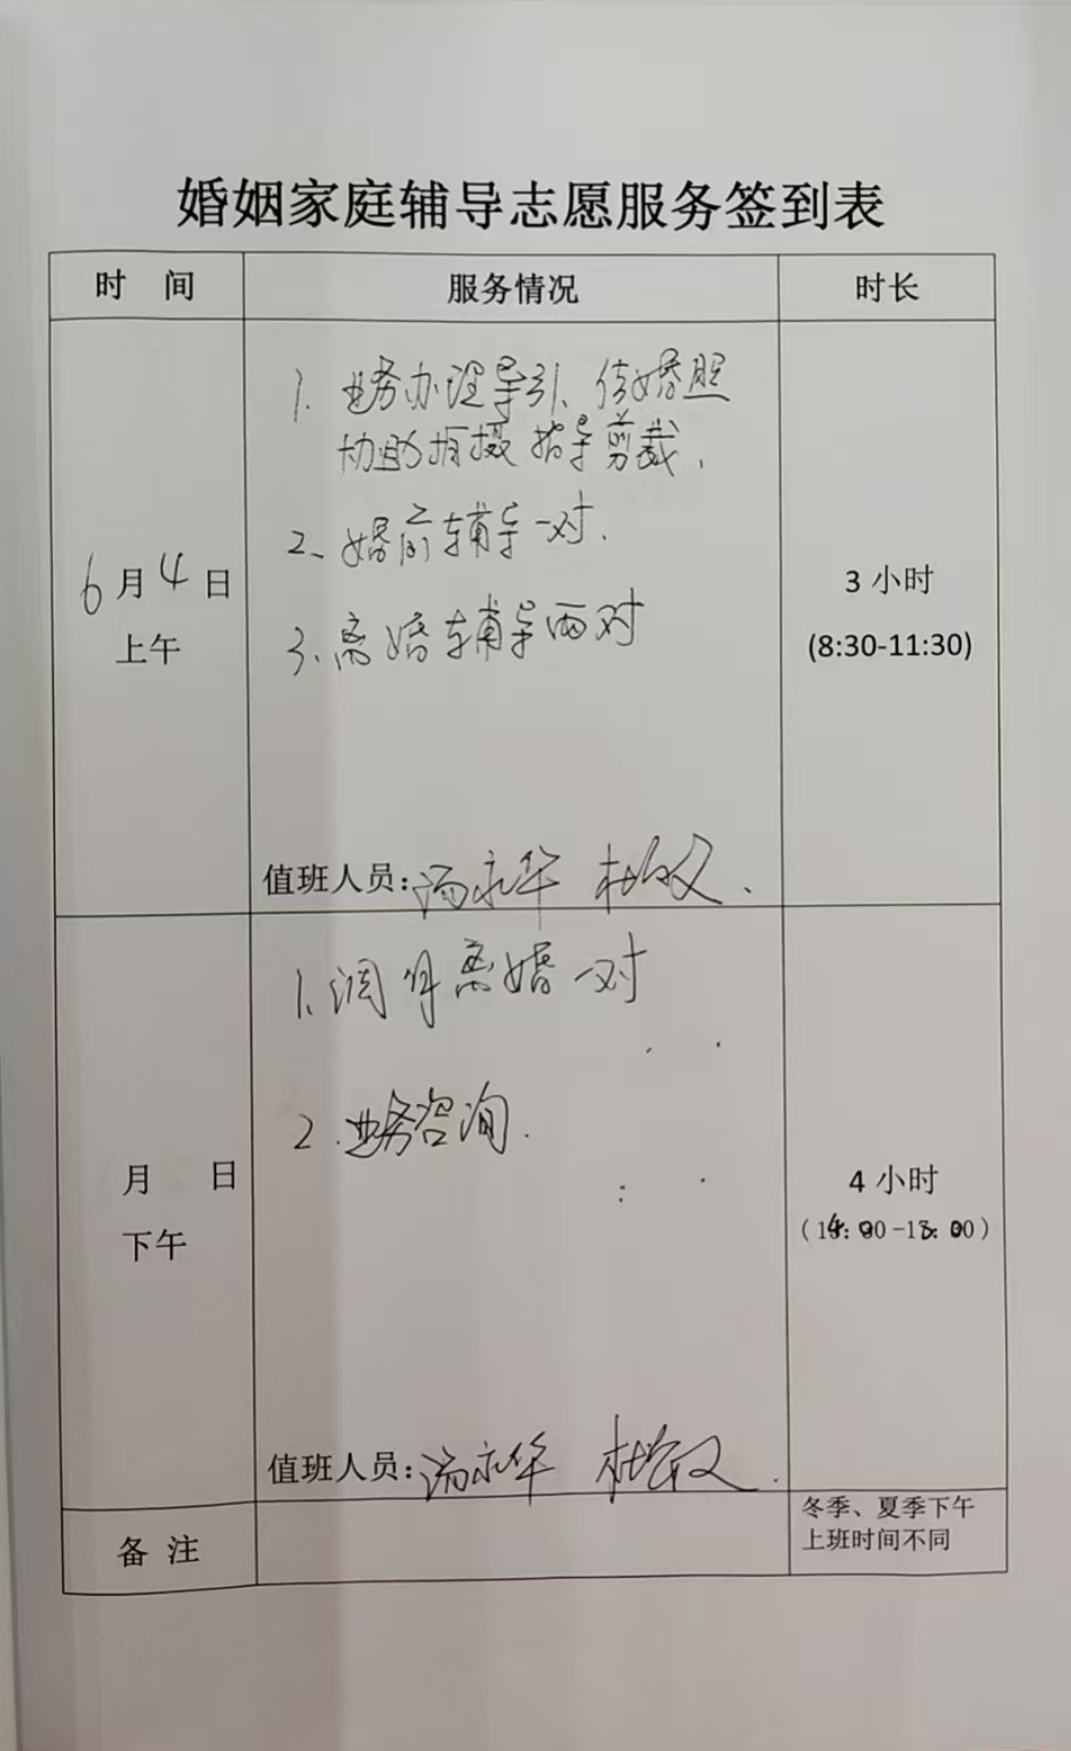 婚姻家庭辅导志愿服务签到表
时 间 服务情况 时长
1. 业务办理导引、结婚照
协助拍摄 指导剪裁.
2、婚前辅导一对.
6月4日
上午
3、离婚辅导两对
3 小时
(8:30-11:30)
值班人员:汤永华 杜
1、调解离婚一对
2.业务咨询.
月 日
下午
4 小时
(14:00-18:00)
值班人员:汤永华 杜
备 注
冬季、夏季下午
上班时间不同